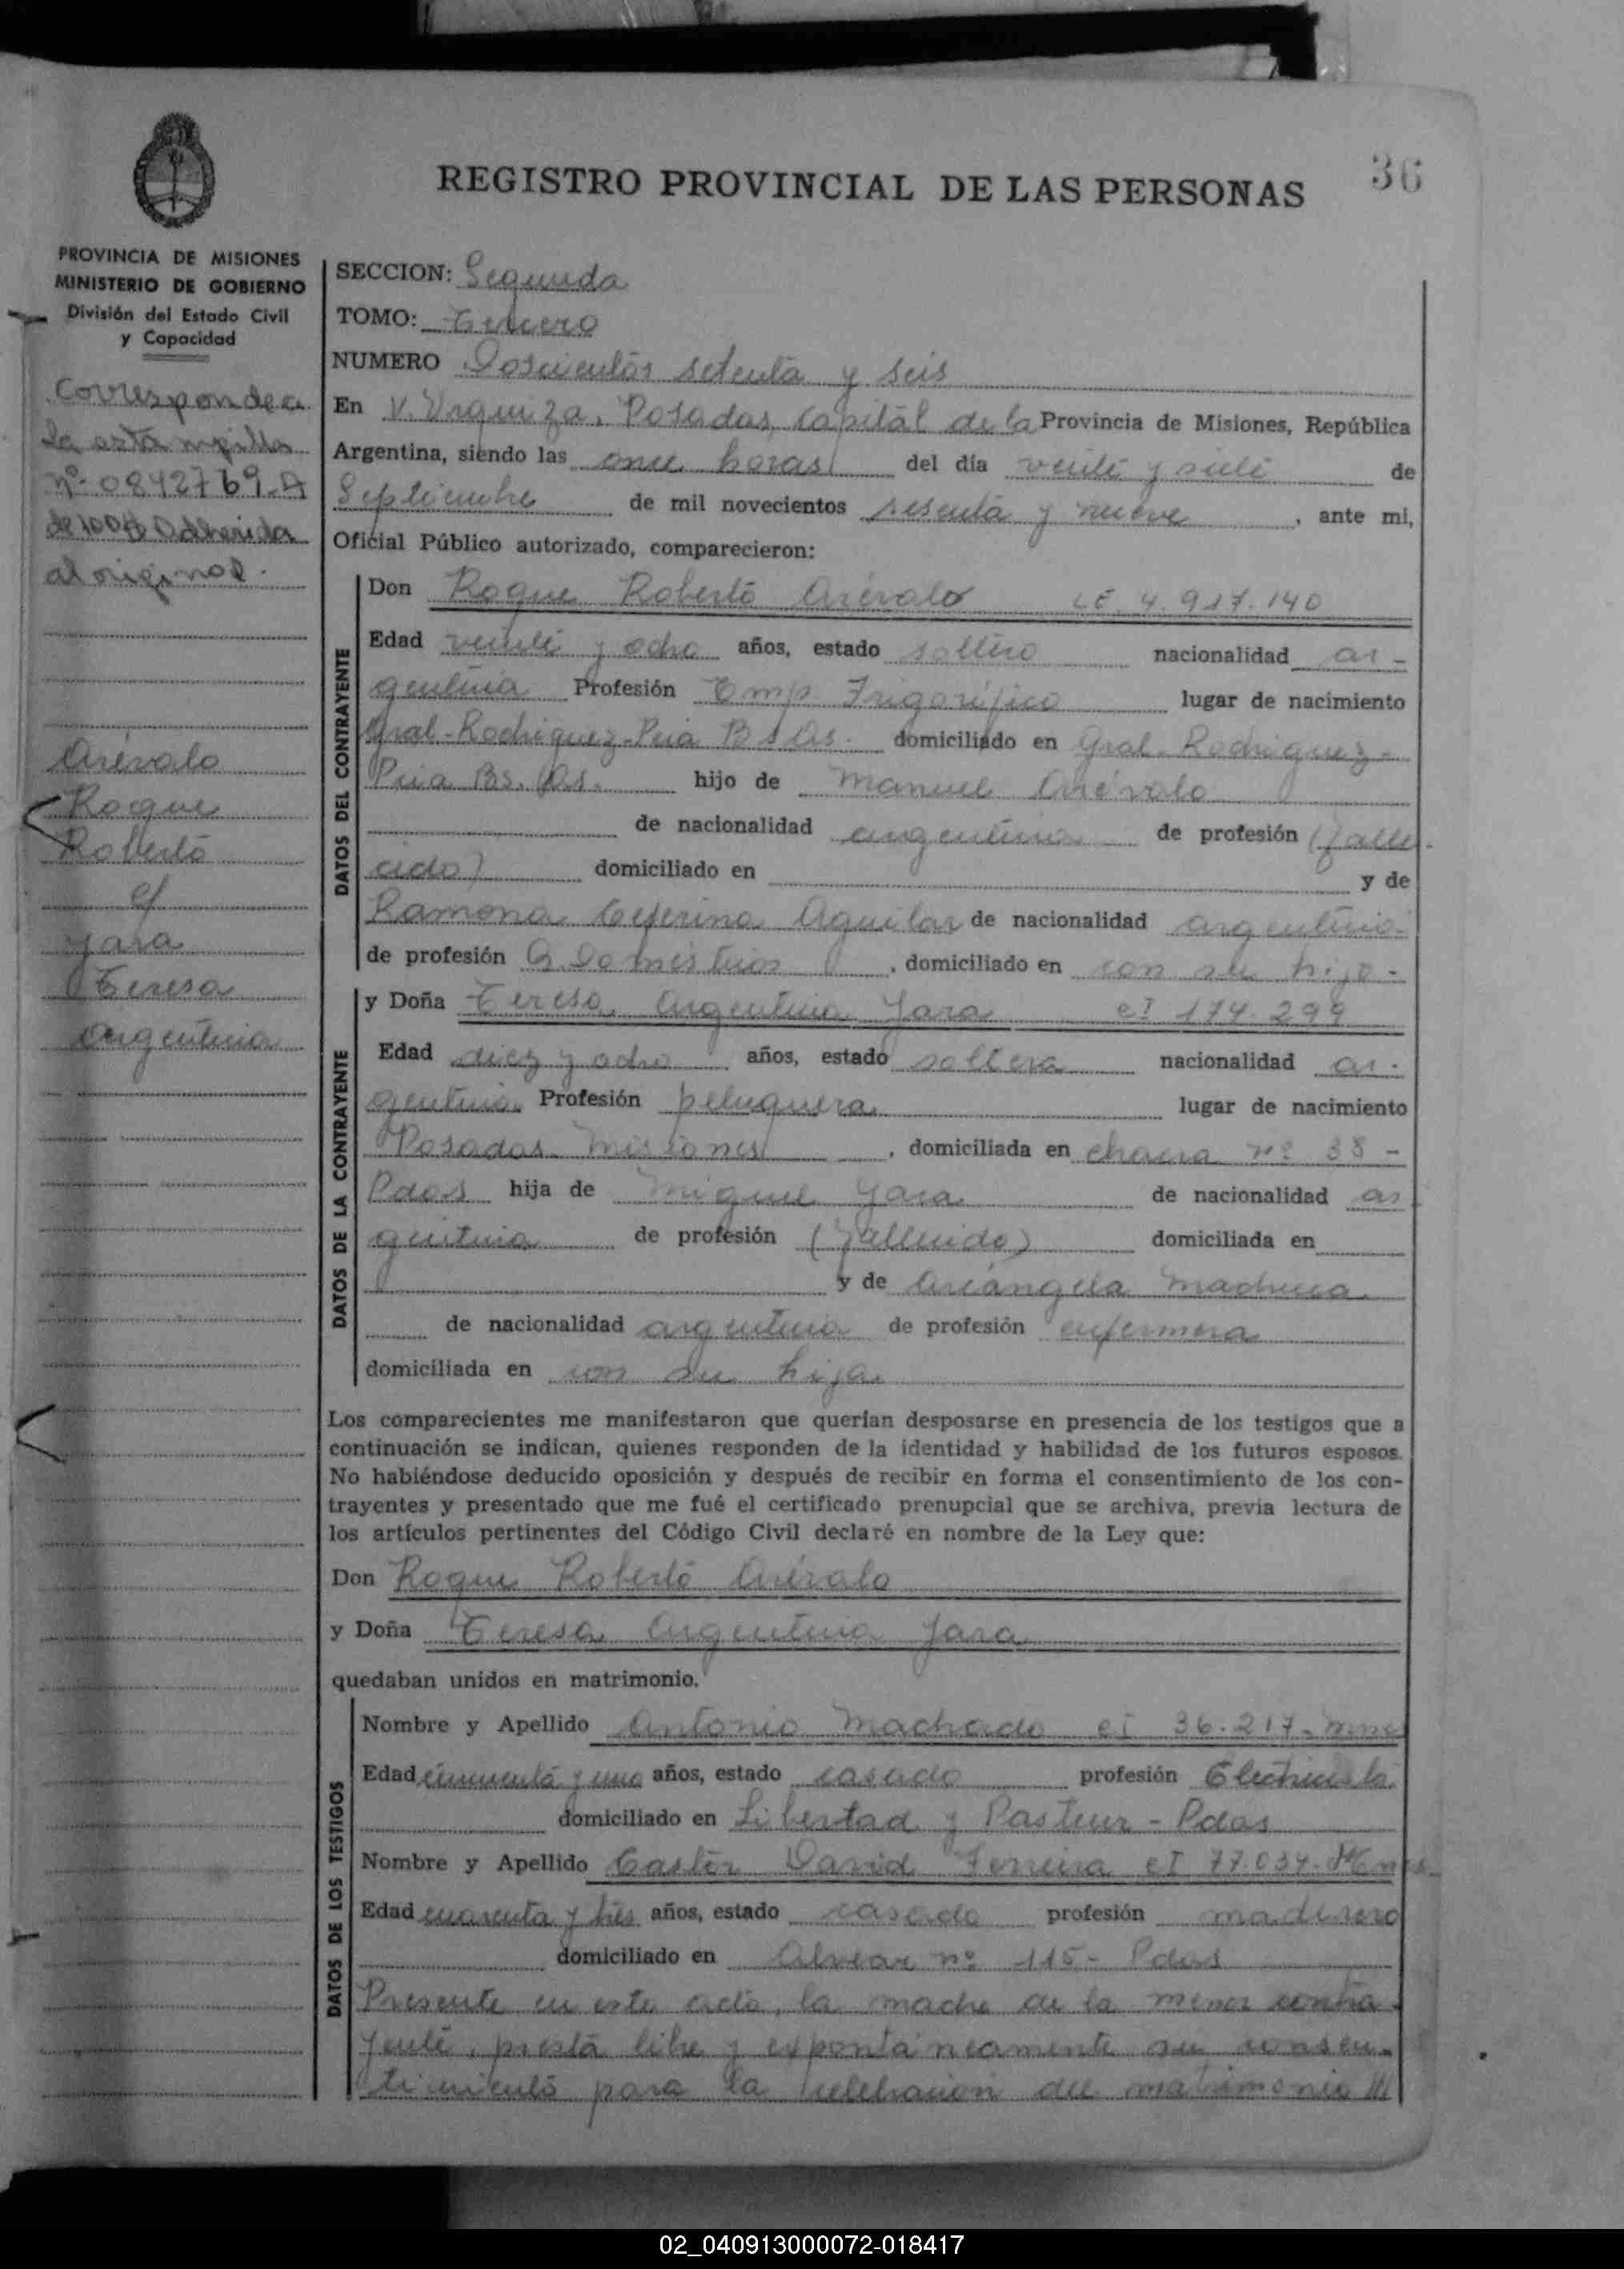 36
REGISTRO PROVINCIAL DE LAS PERSONAS
PROVINCIA DE MISIONES
MINISTERIO DE GOBIERNO
División del Estado Civil
y Capacidad
Corresponde a
la estampilla
nº 0842769-A
de 100 Adherida
al original.
Arévalo
Roque
Roberto
c/
Jara
Teresa
Argentina
SECCION: Segunda
TOMO: Tercero
NUMERO Doscientos setenta y seis
En V. Urquiza, Posadas, capital de la Provincia de Misiones, República
Argentina, siendo las once horas del día veinte y siete de
Septiembre de mil novecientos sesenta y nueve, ante mi,
Oficial Público autorizado, comparecieron:
DATOS DEL CONTRAYENTE
Don Roque Roberto Arévalo LE. 4.917.140
Edad veinte y ocho años, estado soltero nacionalidad ar-
gentina Profesión Emp Frigorífico lugar de nacimiento
Gral-Rodriguez-Pcia Bs As. domiciliado en Gral. Rodriguez-
Pcia Bs. As. hijo de Manuel Arévalo
de nacionalidad argentina de profesión (falle-
cido) domiciliado en y de
Ramona Ceferina Aguilar de nacionalidad argentina
de profesión Q. Domésticos, domiciliado en con su hijo-
DATOS DE LA CONTRAYENTE
y Doña Teresa Argentina Jara CI 174.299
Edad diez y ocho años, estado soltera nacionalidad ar-
gentina Profesión peluquera lugar de nacimiento
Posadas Misiones, domiciliada en chacra nº 38-
Pdas hija de Miguel Jara de nacionalidad ar
gentina de profesión (fallecido) domiciliada en
y de Arcángela Machuca
de nacionalidad argentina de profesión enfermera
domiciliada en con su hija
Los comparecientes me manifestaron que querían desposarse en presencia de los testigos que a
continuación se indican, quienes responden de la identidad y habilidad de los futuros esposos.
No habiéndose deducido oposición y después de recibir en forma el consentimiento de los con-
trayentes y presentado que me fué el certificado prenupcial que se archiva, previa lectura de
los artículos pertinentes del Código Civil declaré en nombre de la Ley que:
Don Roque Roberto Arévalo
y Doña Teresa Argentina Jara
quedaban unidos en matrimonio.
DATOS DE LOS TESTIGOS
Nombre y Apellido Antonio Machado CI 36.217-Mnes
Edad cincuenta y uno años, estado casado profesión Electricista
domiciliado en Libertad y Pasteur - Pdas
Nombre y Apellido Castor David Ferreira CI 77.034-
Edad cuarenta y tres años, estado casado profesión maderero
domiciliado en Alvear nº 115- Pdas
Presente en este acto, la madre de la menor contra-
yente, presta libre y expontáneamente su consen-
timiento para la celebración del matrimonio
02_040913000072-018417